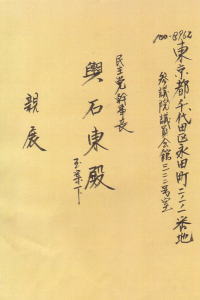 100-8962
東京都千代田区永田町二ノ一ノ一番地
参議院議員会館二二二号室
民主党幹事長
輿石東殿
玉案下
親展